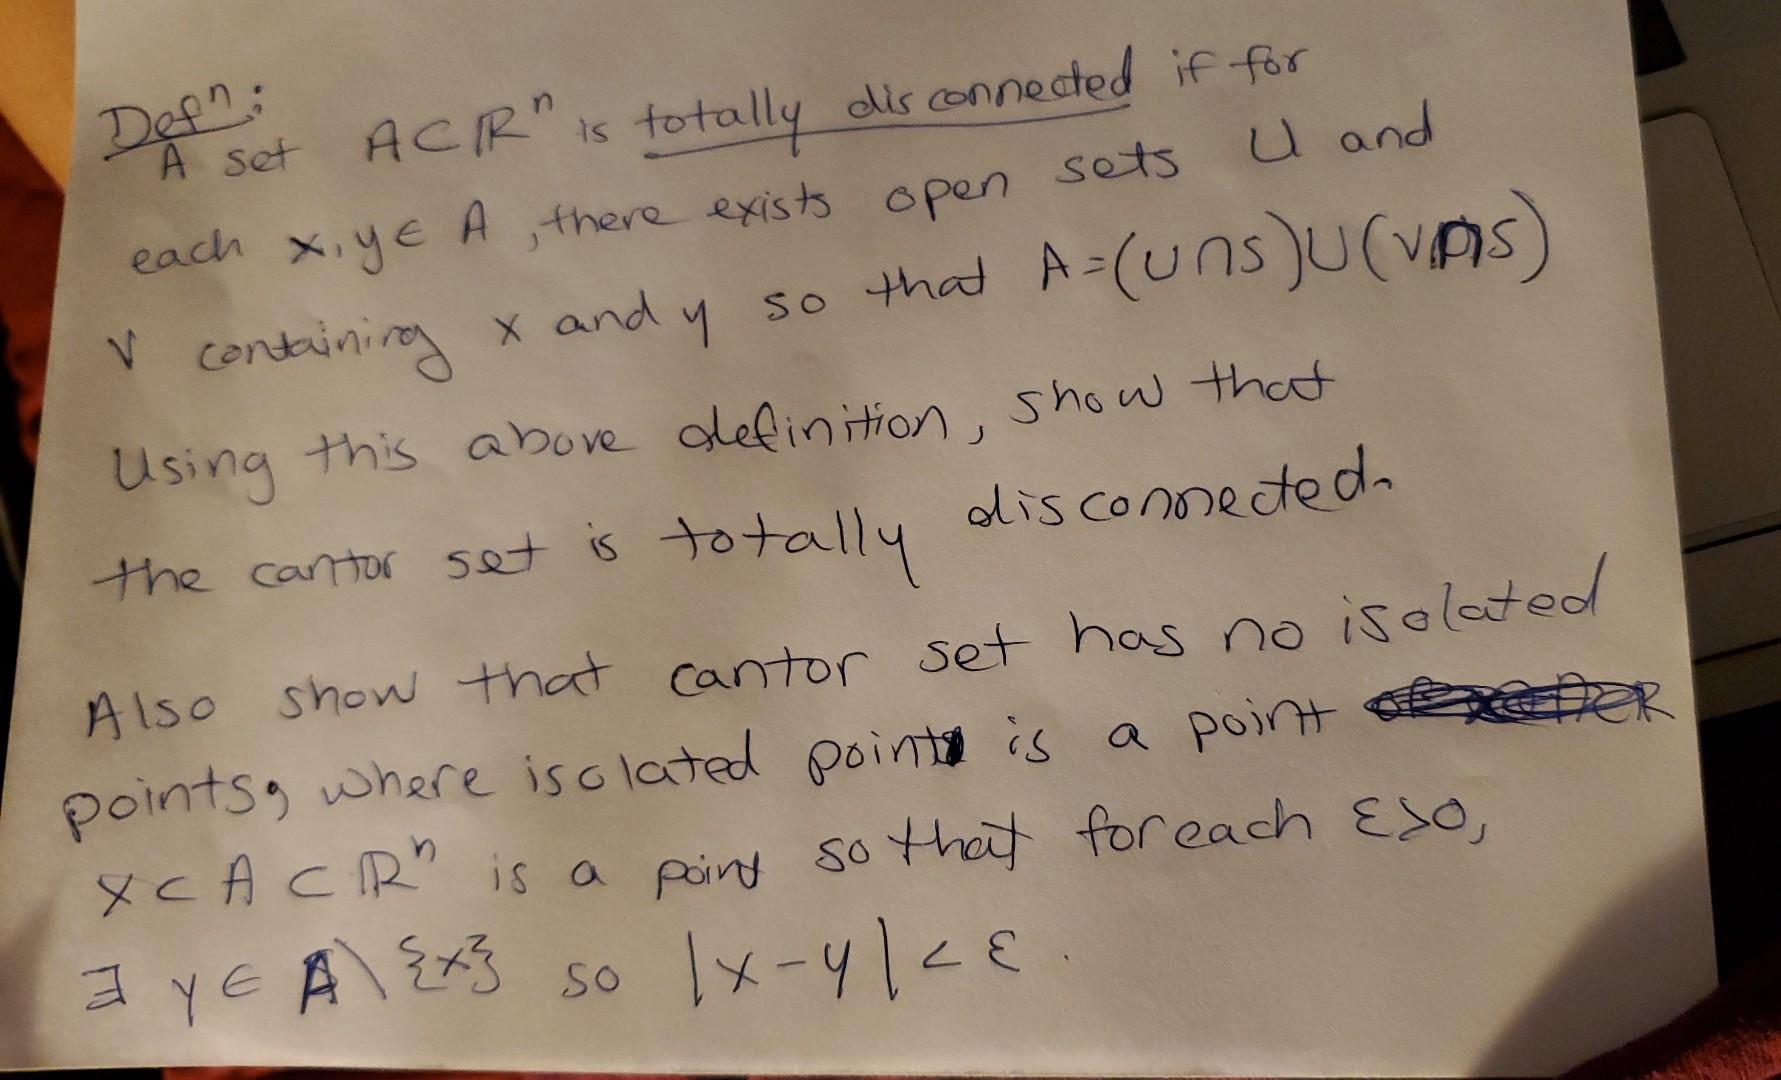 Defⁿ:
A set A⊂ℝⁿ is totally disconnected if for
each x,y∈A, there exists open sets U and
V containing x and y so that A=(U∩S)∪(V∩S)
Using this above definition, show that
the cantor set is totally disconnected.
Also show that cantor set has no isolated
points, where isolated point is a point
x⊂A⊂ℝⁿ is a point so that for each ε>0,
∃ y∈A\{x} so |x-y|<ε.